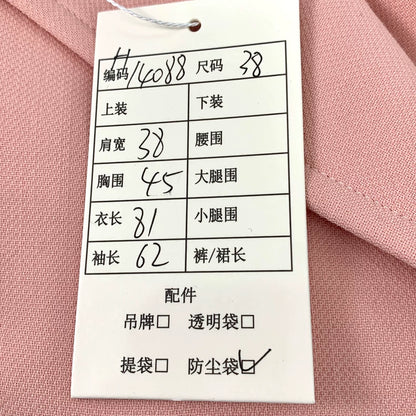 编码 H14088 尺码 38
上装 下装
肩宽 38 腰围
胸围 45 大腿围
衣长 81 小腿围
袖长 62 裤/裙长
配件
吊牌□ 透明袋□
提袋□ 防尘袋☑